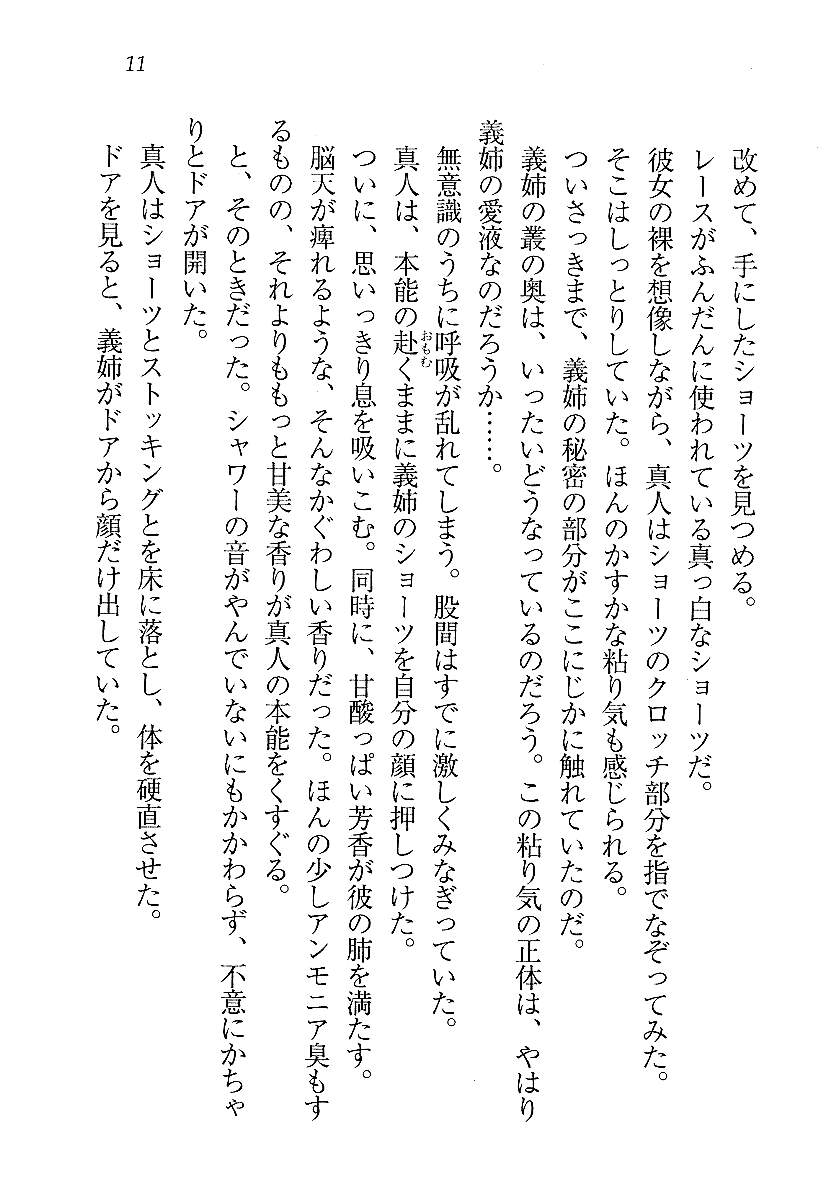 11
改めて、手にしたショーツを見つめる。
レースがふんだんに使われている真っ白なショーツだ。
彼女の裸を想像しながら、真人はショーツのクロッチ部分を指でなぞってみた。
そこはしっとりしていた。ほんのかすかな粘り気も感じられる。
ついさっきまで、義姉の秘密の部分がここにじかに触れていたのだ。
義姉の叢の奥は、いったいどうなっているのだろう。この粘り気の正体は、やはり
義姉の愛液なのだろうか……。
無意識のうちに呼吸が乱れてしまう。股間はすでに激しくみなぎっていた。
真人は、本能の赴くままに義姉のショーツを自分の顔に押しつけた。
おもむ
ついに、思いっきり息を吸いこむ。同時に、甘酸っぱい芳香が彼の肺を満たす。
脳天が痺れるような、そんなかぐわしい香りだった。ほんの少しアンモニア臭もす
るものの、それよりももっと甘美な香りが真人の本能をくすぐる。
と、そのときだった。シャワーの音がやんでいないにもかかわらず、不意にかちゃ
りとドアが開いた。
真人はショーツとストッキングとを床に落とし、体を硬直させた。
ドアを見ると、義姉がドアから顔だけ出していた。